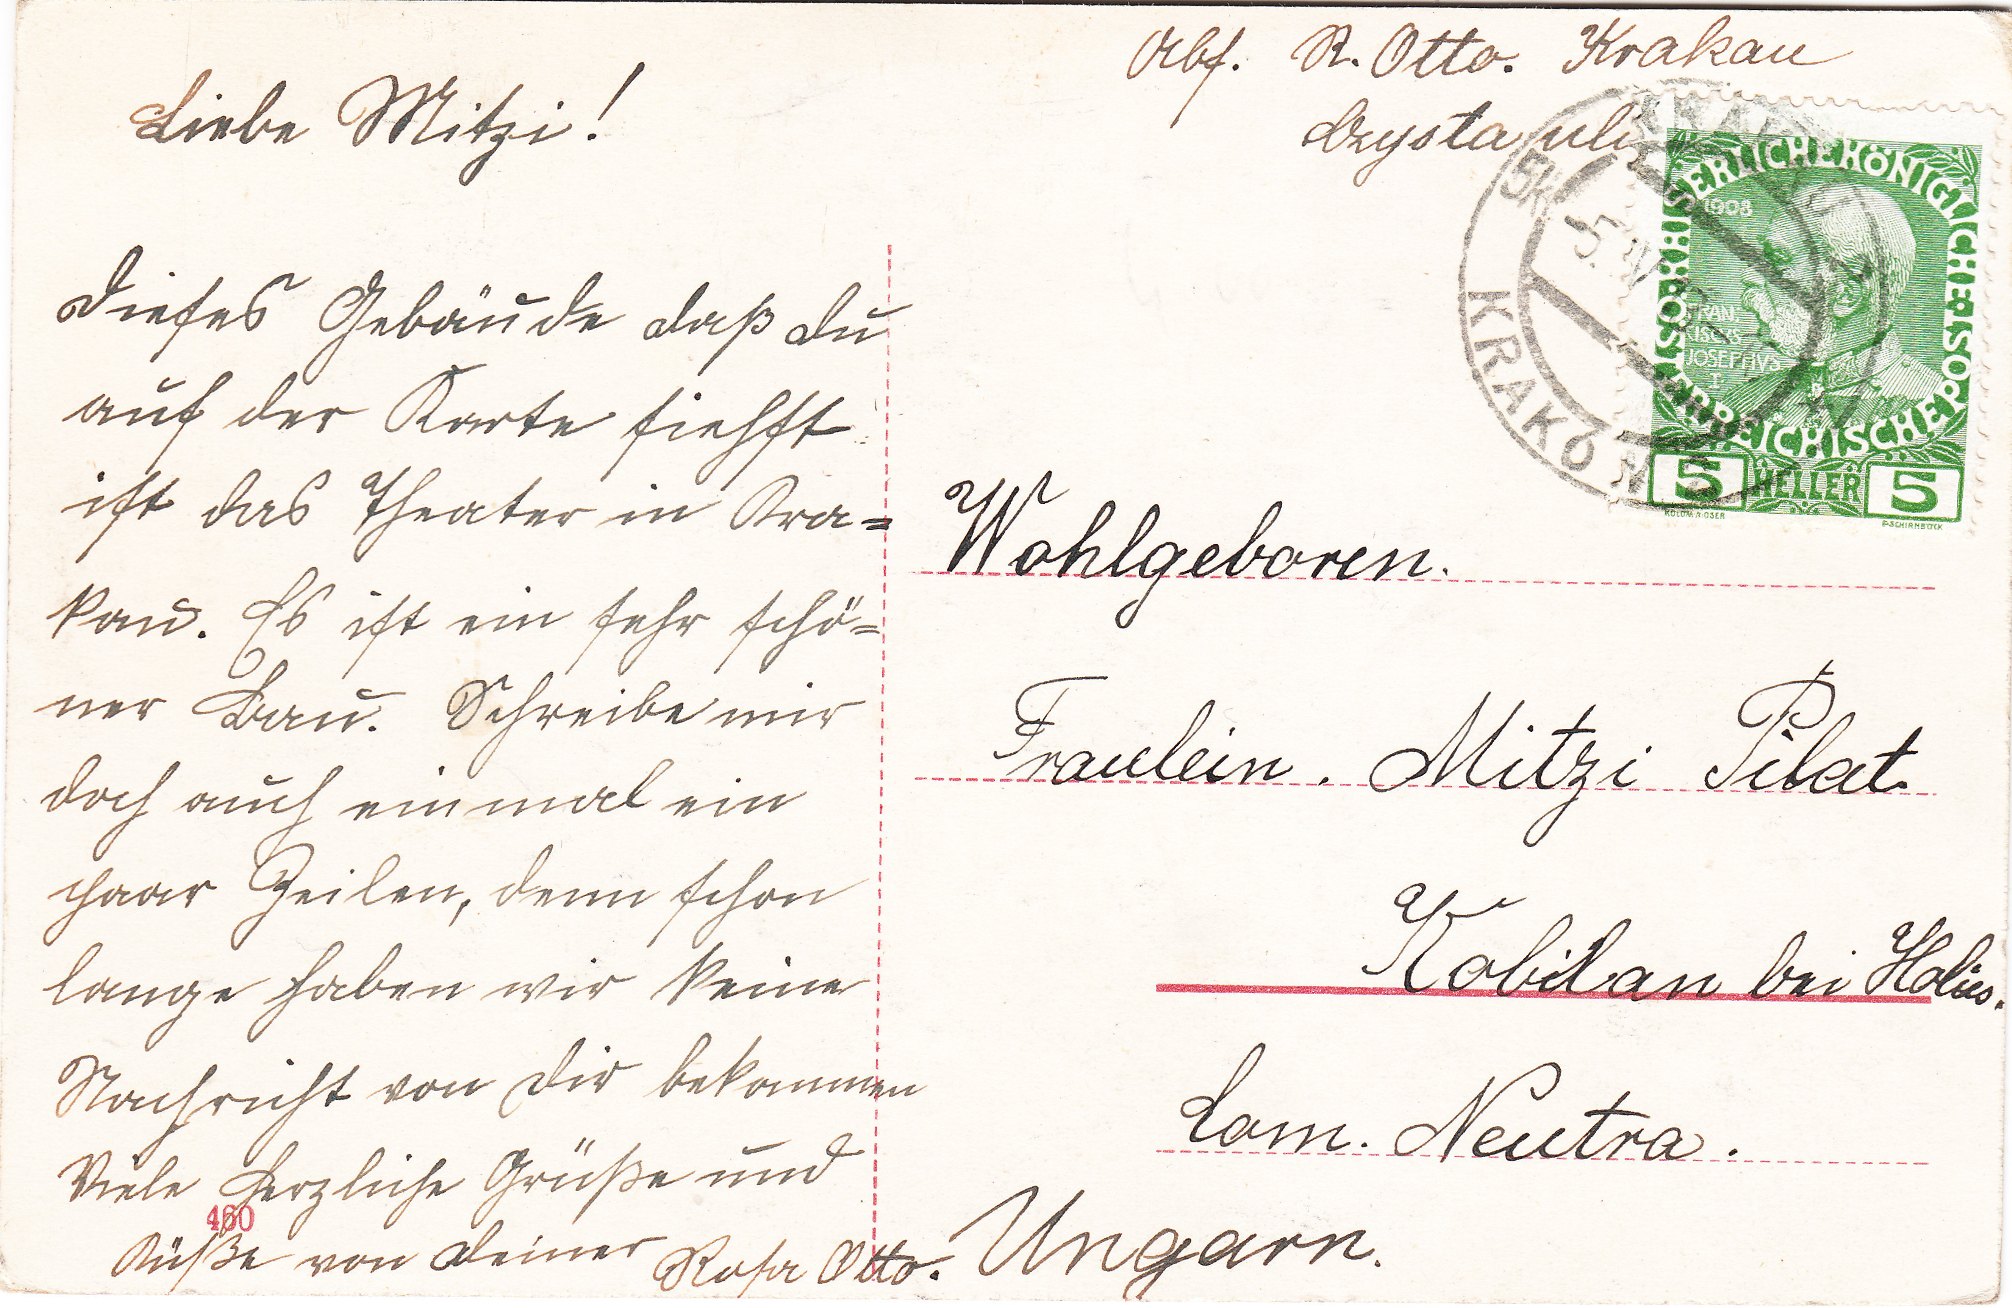 Abs. R. Otto. Krakau
Czysta ul
Liebe Mitzi!
Dieses Gebäude daß du
auf der Karte siehst
ist das Theater in Kra=
kau. Es ist ein sehr schö=
ner Bau. Schreibe mir
doch auch einmal ein
paar Zeilen, denn schon
lange haben wir keine
Nachricht von Dir bekommen
Viele herzliche Grüße und
Küße von deiner Rosa Otto.
460
KRAKÓW
5 IV
1908
KAISERLICHE KÖNIGLICHE
ÖSTERREICHISCHE POST
FRAN.
CISCVS
JOSEPHVS
I
5 HELLER 5
KOLOM. MOSER
F. SCHIRNBÖCK
Wohlgeboren.
Fraulein. Mitzi Pilat
Kobilan bei Holics.
Com. Neutra.
Ungarn.